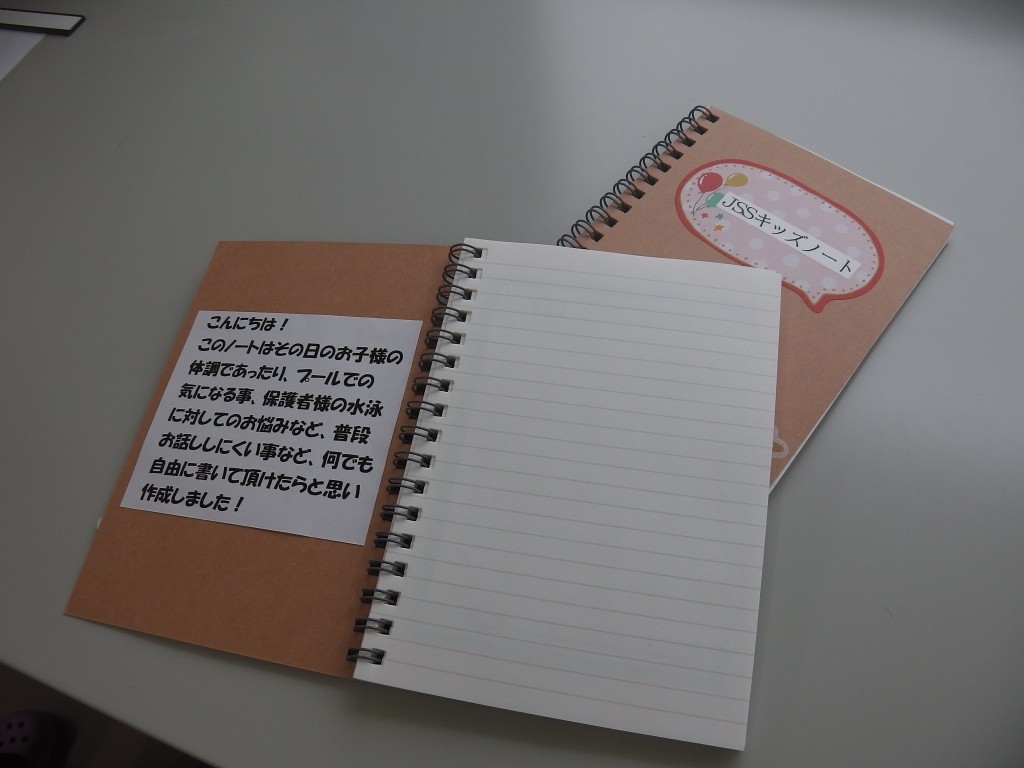 こんにちは！
このノートはその日のお子様の
体調であったり、プールでの
気になる事、保護者様の水泳
に対してのお悩みなど、普段
お話ししにくい事など、何でも
自由に書いて頂けたらと思い
作成しました！
JSSキッズノート